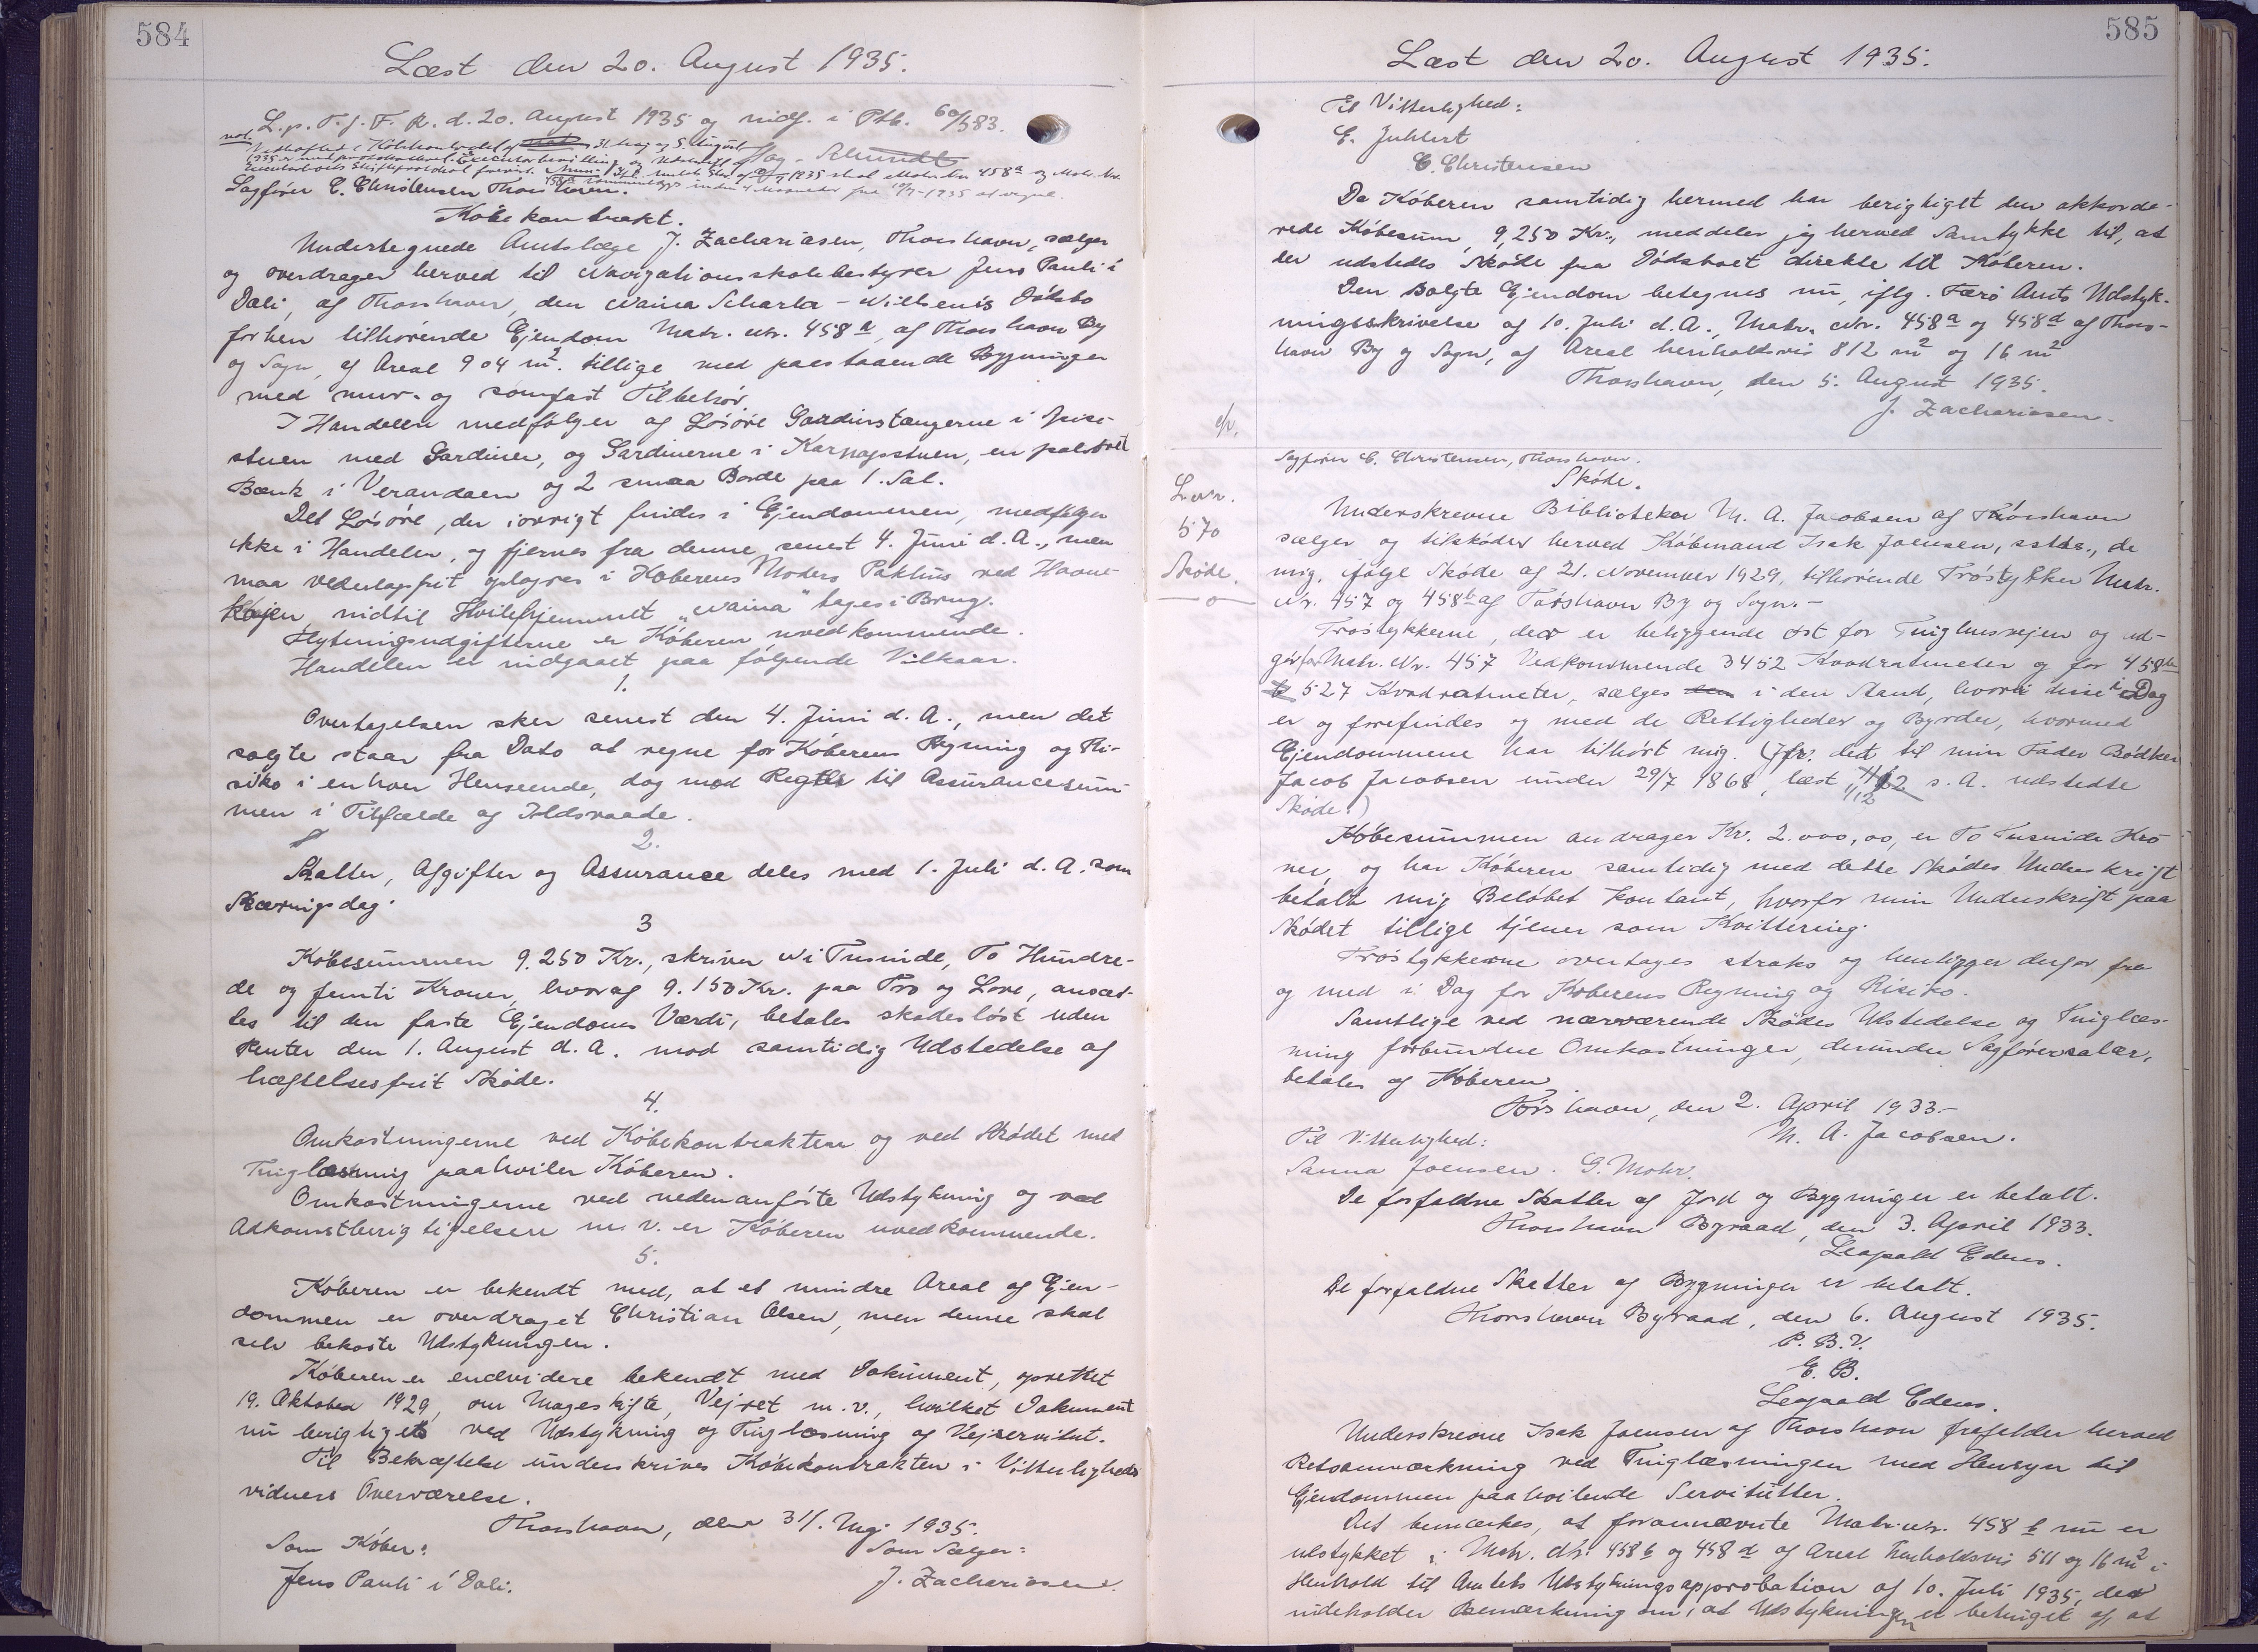 584
Læst den 20. August 1935.
L. p. T. f. F. R. d. 20. August 1935 og indf. i Ptb. 60/583.
31. Maj og 5. August
Sagfører C. Christensen Thorshavn.
Købekontrakt.
Undertegnede Amtslæge J. Zachariasen, Thorshavn, sælger
og overdrager herved til Navigationsskolebestyrer Jens Pauli í
Dali, af Thorshavn, den Naina Scharla-Nielsen's Dødsbo
forhen tilhørende Ejendom Matr. Nr. 458 a, af Thorshavn By
og Sogn, af Areal 904 m2. tillige med paastaaende Bygninger
med mur- og sømfast Tilbehør.
I Handelen medfølger af Løsøre Gardinstængerne i Spise-
stuen med Gardiner, og Gardinerne i Karnapstuen, en polstret
Bænk i Verandaen og 2 smaa Borde paa 1. Sal.
Det Løsøre, der iøvrigt findes i Ejendommen, medfølger
ikke i Handelen, og fjernes fra denne senest 4. Juni d. A., men
maa vederlagsfrit oplagres i Køberens Moders Pakhus ved Havne-
kajen indtil Hvilehjemmet "Naina" tages i Brug.
Flytningsudgifterne er Køberen uvedkommende.
Handelen er indgaaet paa følgende Vilkaar.
1.
Overtagelsen sker senest den 4. Juni d. A., men det
solgte staar fra Dato at regne for Køberens Regning og Ri-
siko i enhver Henseende, dog med Regres til Assurancesum-
men i Tilfælde af Ildsvaade.
2.
Skatter, Afgifter og Assurance deles med 1. Juli d. A. som
Skæringsdag.
3
Købesummen 9.250 Kr., skriver Ni Tusinde, To Hundre-
de og femti Kroner, hvoraf 9.150 Kr. paa Tro og Love, ansæt-
tes til den faste Ejendoms Værdi, betales skadesløst uden
Renter den 1. August d. A. mod samtidig Udstedelse af
hæftelsesfrit Skøde.
4.
Omkostningerne ved Købekontrakten og ved Skødet med
Tinglæsning paahviler Køberen.
Omkostningerne ved nedenanførte Udstykning og ved
Adkomstberigtigelsen m. v. er Køberen uvedkommende.
5.
Køberen er bekendt med, at et mindre Areal af Ejen-
dommen er overdraget Christian Olsen, men denne skal
selv bekoste Udstykningen.
Køberen er endvidere bekendt med Dokument, oprettet
19. Oktober 1929, om Mageskifte, Vejret m. v., hvilket Dokument
nu berigtiges ved Udstykning og Tinglæsning af Vejservitut.
Til Bekræftelse underskrives Købekontrakten i Vitterligheds
vidners Overværelse.
Thorshavn, den 31. Maj 1935.
Som Køber: Som Sælger:
Jens Pauli í Dali. J. Zachariasen.
585
Læst den 20. August 1935.
Til Vitterlighed:
E. Juhlert
C. Christensen
Da Køberen samtidig hermed har berigtiget den akkorde-
rede Købesum, 9,250 Kr., meddeler jeg herved Samtykke til, at
der udstedes Skøde fra Dødsboet direkte til Køberen.
Den solgte Ejendom betegnes nu, iflg. Færø Amts Udstyk-
ningsskrivelse af 10. Juli d. A., Matr. Nr. 458 a og 458 d af Thors-
havn By og Sogn, af Areal henholdsvis 812 m2 og 16 m2
Thorshavn, den 5. August 1935.
J. Zachariasen.
Sagfører C. Christensen, Thorshavn.
Skøde.
Lvnr.
570
Skøde.
Underskrevne Bibliotekar M. A. Jacobsen af Thorshavn
sælger og tilskøder herved Købmand Isak Joensen, sstds., de
mig, ifølge Skøde af 21. November 1929, tilhørende Trøstykker Matr.
Nr. 457 og 458 b af Tórshavn By og Sogn. –
Trøstykkerne, der er beliggende øst for Tinghusvejen og ud-
gør for Matr. Nr. 457 Vedkommende 3452 Kvadratmeter og for 458
b 527 Kvadratmeter, sælges i den Stand, hvori disse i Dag
er og forefindes og med de Rettigheder og Byrder, hvormed
Ejendommene har tilhørt mig. (Jfr. det til min Fader Bødker
Jacob Jacobsen under 29/7 1868, læst s. A. udstedte
Skøde.)
Købesummen andrager Kr. 2.000,00, er To Tusinde Kro
ner, og har Køberen samtidig med dette Skødes Underskrift
betalt mig Beløbet kontant, hvorfor min Underskrift paa
Skødet tillige tjener som Kvittering.
Trøstykkerne overtages straks og henligger derfor fra
og med i Dag for Køberens Regning og Risiko.
Samtlige ved nærværende Skødes Udstedelse og Tinglæs-
ning forbundne Omkostninger, derunder Sagførersalær,
betales af Køberen.
Tórshavn, den 2. April 1933.–
Til Vitterlighed: M. A. Jacobsen.
Sanna Joensen. G. Mohr.
De forfaldne Skatter af Jord og Bygninger er betalt.
Thorshavn Byraad, den 3. April 1933.
Leopold Edens.
De forfaldne Skatter af Bygninger er betalt.
Thorshavn Byraad, den 6. August 1935.
P. B. V.
E. B.
Leopold Edens.
Underskrevne Isak Joensen af Thorshavn frafalder herved
Retsanmærkning ved Tinglæsningen med Hensyn til
Ejendommen paahvilende Servitutter.
Det bemærkes, at forannævnte Matr. nr. 458 b nu er
udstykket i Matr. Nr. 458 b og 458 d af Areal henholdsvis 511 og 16 m2 i
Henhold til Amtets Udstykningsapprobation af 10. Juli 1935, der
indeholder Bemærkning om, at Udstykningen er betinget af, at